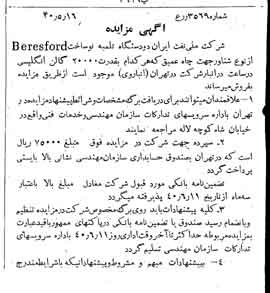 شماره ۳۵۶۹ررع ۴۰٫۵٫۱۶
آگهی مزایده
شرکت ملی نفت ایران دو دستگاه تلمبه نو ساخت Beresford
از نوع شناور جهت چاه عمیق که هر کدام بقدرت ۲۰۰۰۰ گالن انگلیسی
در ساعت در انبار شرکت در تهران (انباری) موجود است از طریق مزایده
بفروش میرساند
۱- علاقمندان میتوانند برای دریافت برگ مشخصات و شرائط پیشنهاد مزایده در
تهران باداره سرویسهای تدارکات سازمان مهندسی و خدمات فنی واقع در
خیابان شاه کوچه لاله مراجعه نمایند
۲- سپرده جهت شرکت در مزایده فوق مبلغ ۷۵۰۰۰ ریال
است که در تهران بصندوق حسابداری سازمان مهندسی نشانی بالا بایستی
پرداخت گردد
تضمین نامه بانکی مورد قبول شرکت معادل مبلغ بالا باعتبار
سه ماه از تاریخ ۴۰٫۶٫۱۱ پذیرفته میگردد
۳- کلیه پیشنهادات باید روی برگ مخصوص شرکت در مزایده تنظیم
و بانضمام رسید صندوق یا تضمین نامه بانکی در پاکتهای ممهور با قید عبارت
مزایده مربوطه حداکثر تا آخر وقت اداری روز ۴۰٫۶٫۱۱ باداره سرویسهای
تدارکات سازمان مهندسی تسلیم گردد
۴- به پیشنهادات مبهم و مشروط و پیشنهاداتیکه با شرایط مندرج